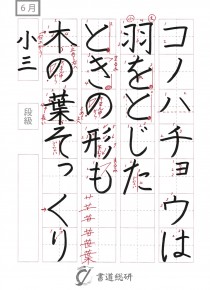 6月
コノハチョウは
羽をとじた
ときの形も
木の葉そっくり
小三
段級
書道総研